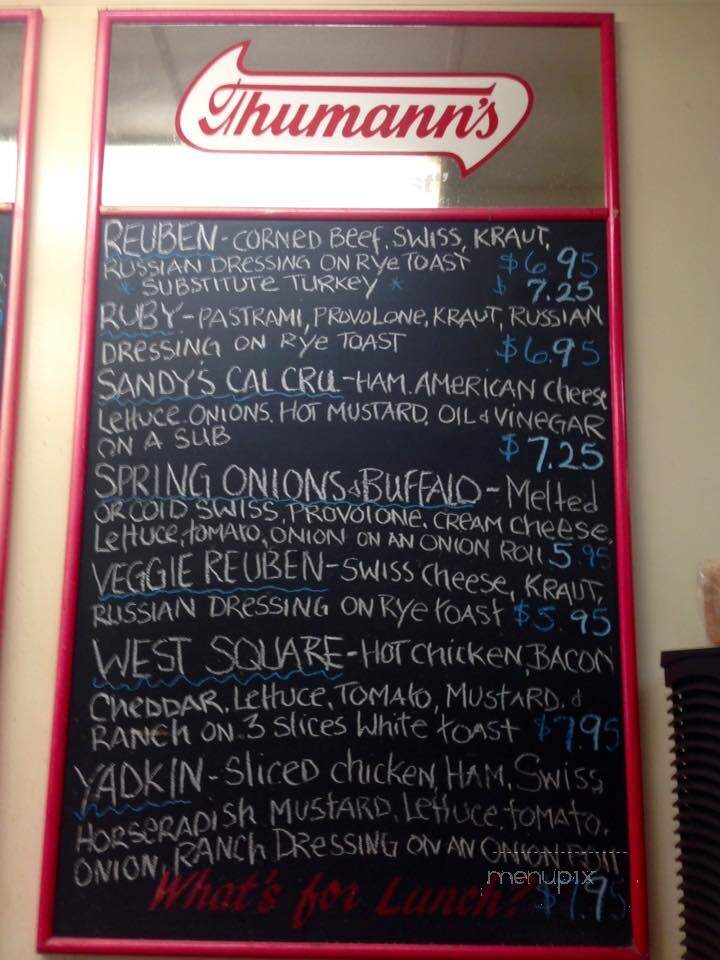 Thumann's
st"
REUBEN - CORNED BEEF, SWISS, KRAUT,
RUSSIAN DRESSING ON RYE TOAST $6.95
* SUBSTITUTE TURKEY * $ 7.25
RUBY - PASTRAMI, PROVOLONE, KRAUT, RUSSIAN
DRESSING ON RYE TOAST $6.95
SANDY'S CAL CRU - HAM. AMERICAN Cheese
Lettuce. ONIONS. HOT MUSTARD. OIL & VINEGAR
ON A SUB $7.25
SPRING ONIONS & BUFFALO - Melted
OR COLD SWISS, PROVOLONE, CREAM Cheese,
Lettuce, tomato, ONION ON AN ONION ROLL 5.95
VEGGIE REUBEN - SWISS Cheese, KRAUT,
RUSSIAN DRESSING ON RYE TOAST $5.95
WEST SQUARE - HOT Chicken, BACON
CHEDDAR, Lettuce, TOMATO, MUSTARD. &
RANCH ON 3 SLICES White toast $7.95
YADKIN - Sliced chicken, HAM, SWISS,
HORSERADISH MUSTARD. Lettuce, tomato,
ONION, RANCH DRESSING ON AN ONION ROLL
menupix
What's for Lunch? $7.95